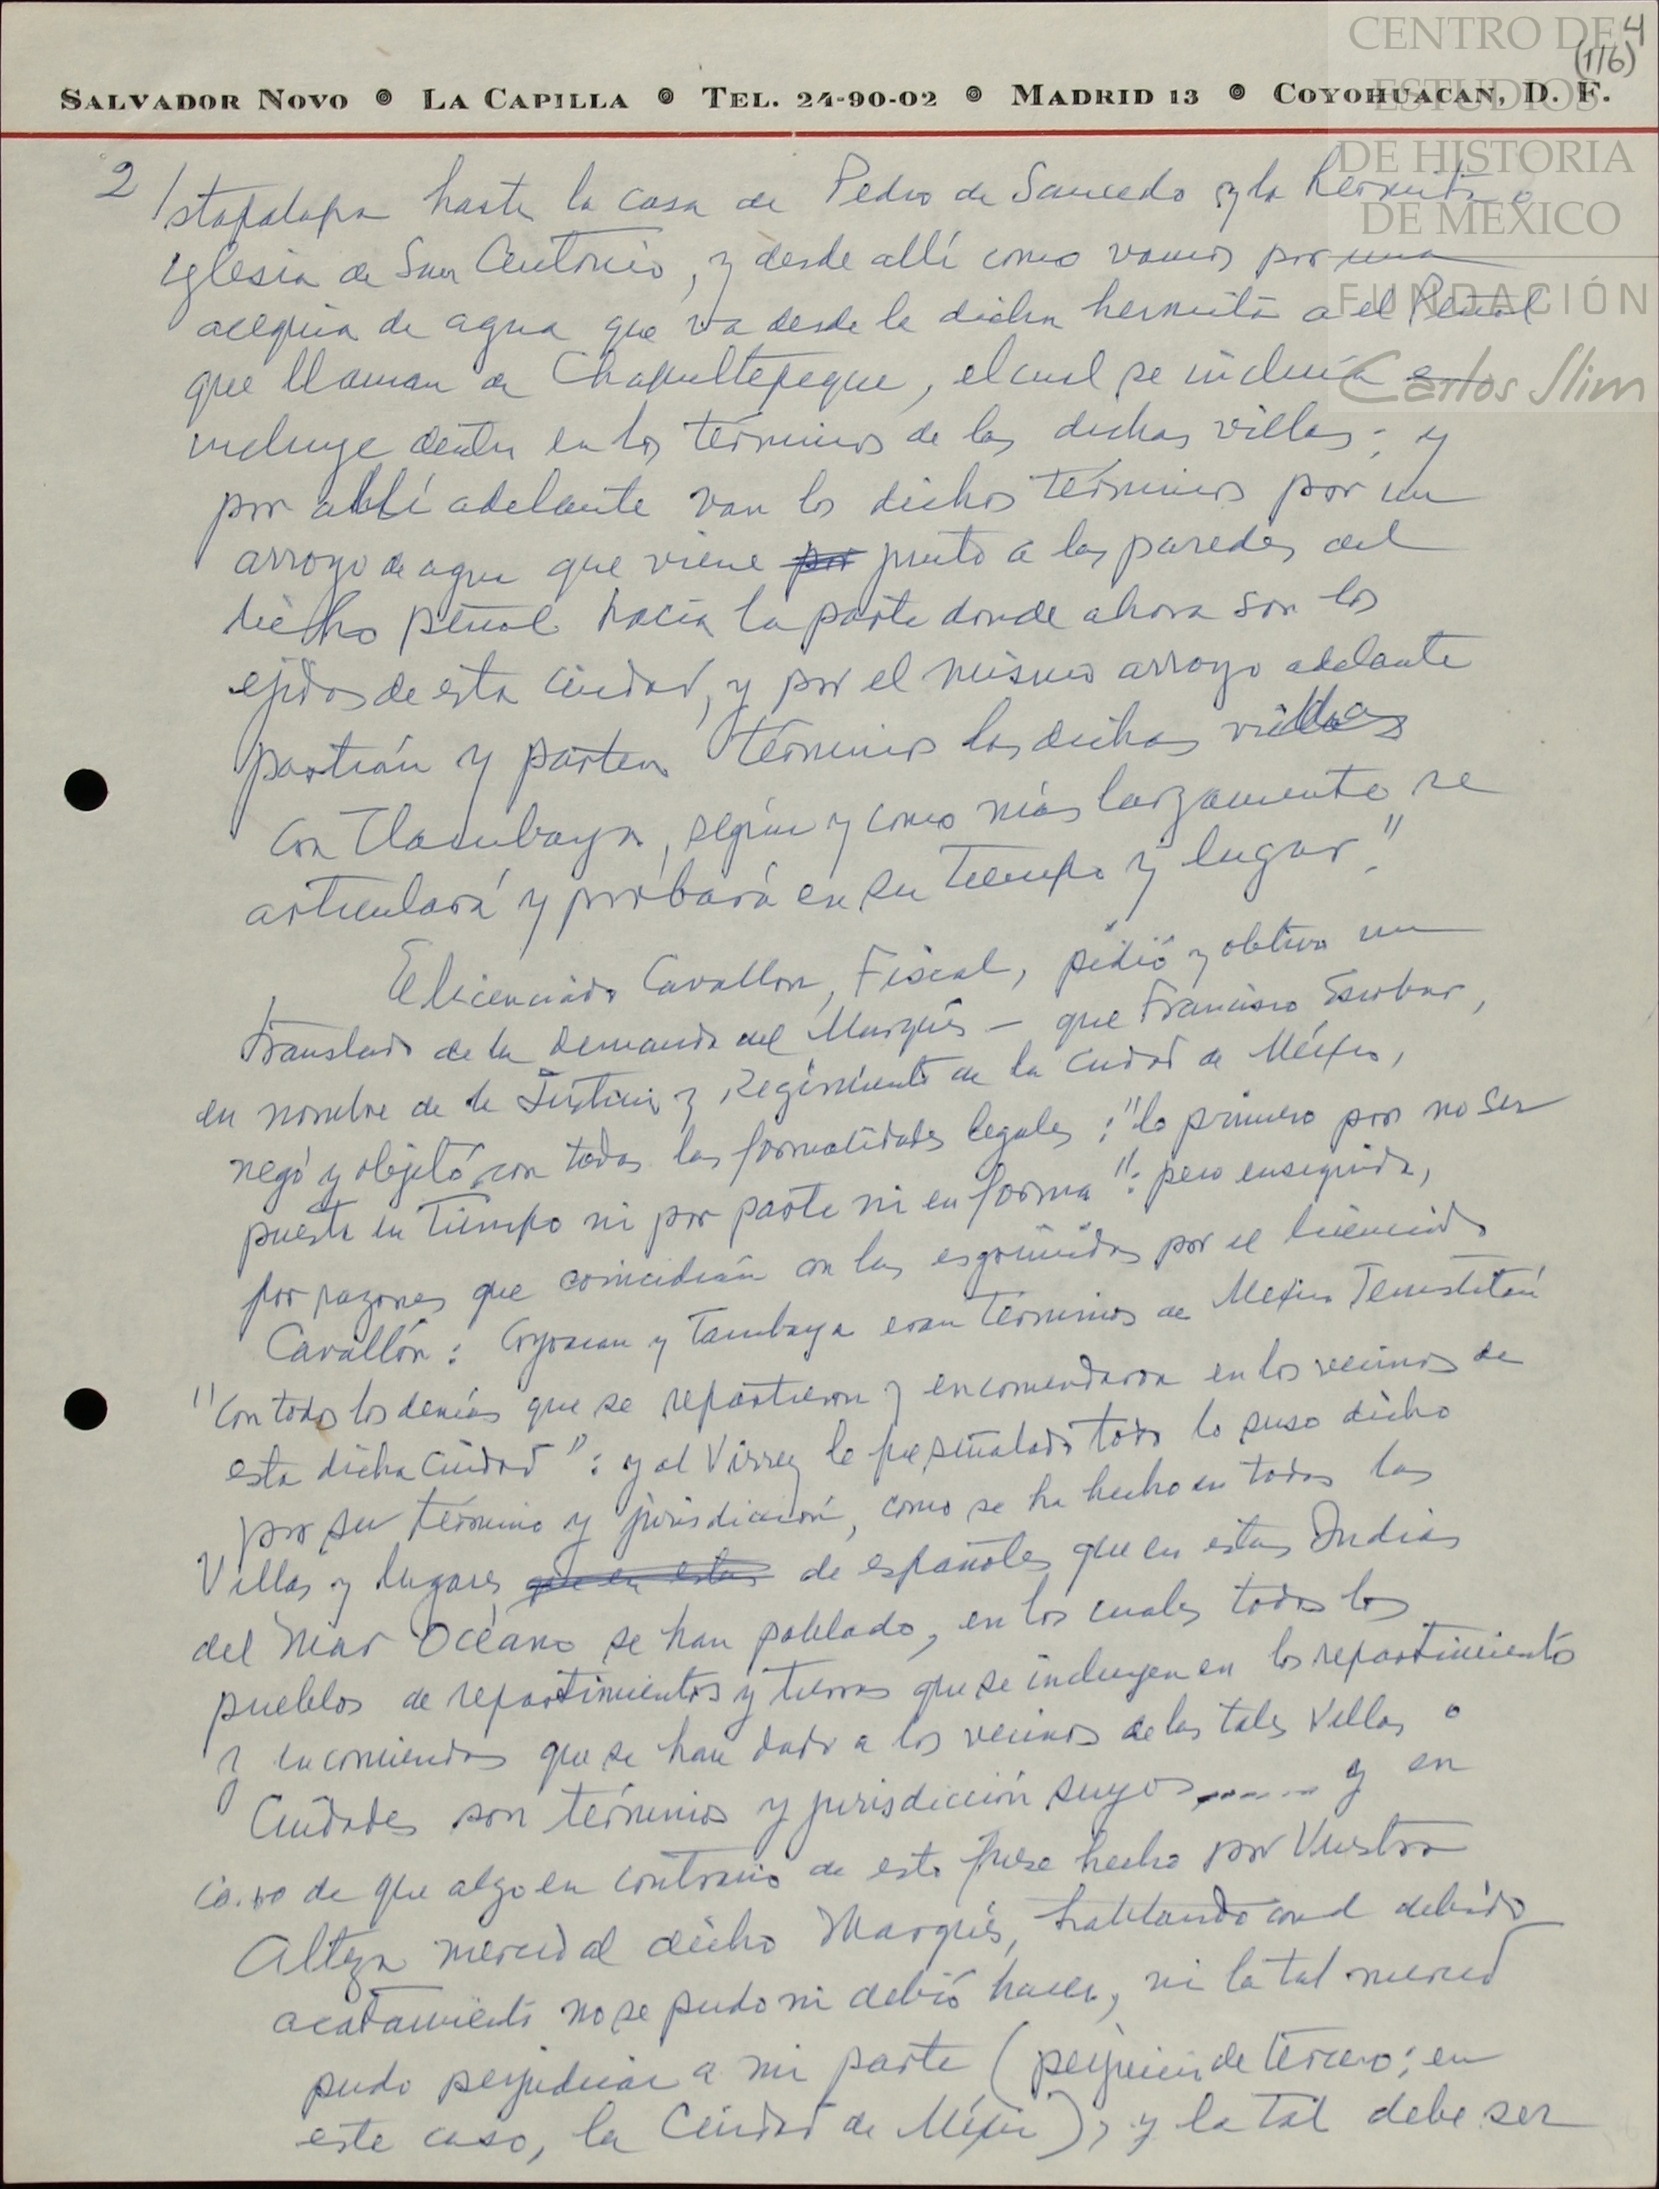 CENTRO DE
ESTUDIOS
DE HISTORIA
DE MÉXICO
FUNDACIÓN
Carlos Slim
4
(1/6)
SALVADOR NOVO ⊚ LA CAPILLA ⊚ TEL. 24-90-02 ⊚ MADRID 13 ⊚ COYOHUACAN, D. F.
2 Istapalapa hasta la casa de Pedro de Saucedo y la hermita o
iglesia de San Antonio, y desde allí como vamos por una
acequia de agua que va desde la dicha hermita a el Peñol
que llaman de Chapultepeque, el cual se incluía e
incluye dentro en los términos de las dichas villas; y
por allí adelante van los dichos términos por un
arroyo de agua que viene por junto a las paredes del
dicho peñol hacia la parte donde ahora son los
ejidos de esta ciudad, y por el mismo arroyo adelante
partían y parten términos las dichas villas
con Tlacubaya, según y como más largamente se
articulará y probará en su tiempo y lugar."
El licenciado Cavallon, Fiscal, pidió y obtuvo un
translado de la demanda del Marqués — que Francisco Escobar,
en nombre de la Justicia y Regimiento de la ciudad de México,
negó y objetó con todas las formalidades legales: "lo primero por no ser
puesta en tiempo ni por parte ni en forma": pero enseguida,
por razones que coincidían con las esgrimidas por el licenciado
Cavallón: Coyoacan y Tacubaya eran términos de Mexico Tenustitán
"con todos los demás que se repartieron y encomendaron en los vecinos de
esta dicha ciudad": y al Virrey le fue señalado todo lo suso dicho
por su término y jurisdicción, como se ha hecho en todas las
Villas y lugares que en estas de españoles que en estas Indias
del Mar Océano se han poblado, en los cuales todos los
pueblos de repartimientos y tierras que se incluyen en los repartimientos
y encomiendas que se han dado a los vecinos de las tales Villas o
Ciudades son términos y jurisdicción suyos...... y en
caso de que algo en contrario de esto fuese hecho por Vuestra
Alteza merced al dicho Marqués, hablando con el debido
acatamiento no se pudo ni debió hacer, ni la tal merced
pudo perjudicar a mi parte (perjuicio de tercero; en
este caso, la Ciudad de México), y la tal debe ser